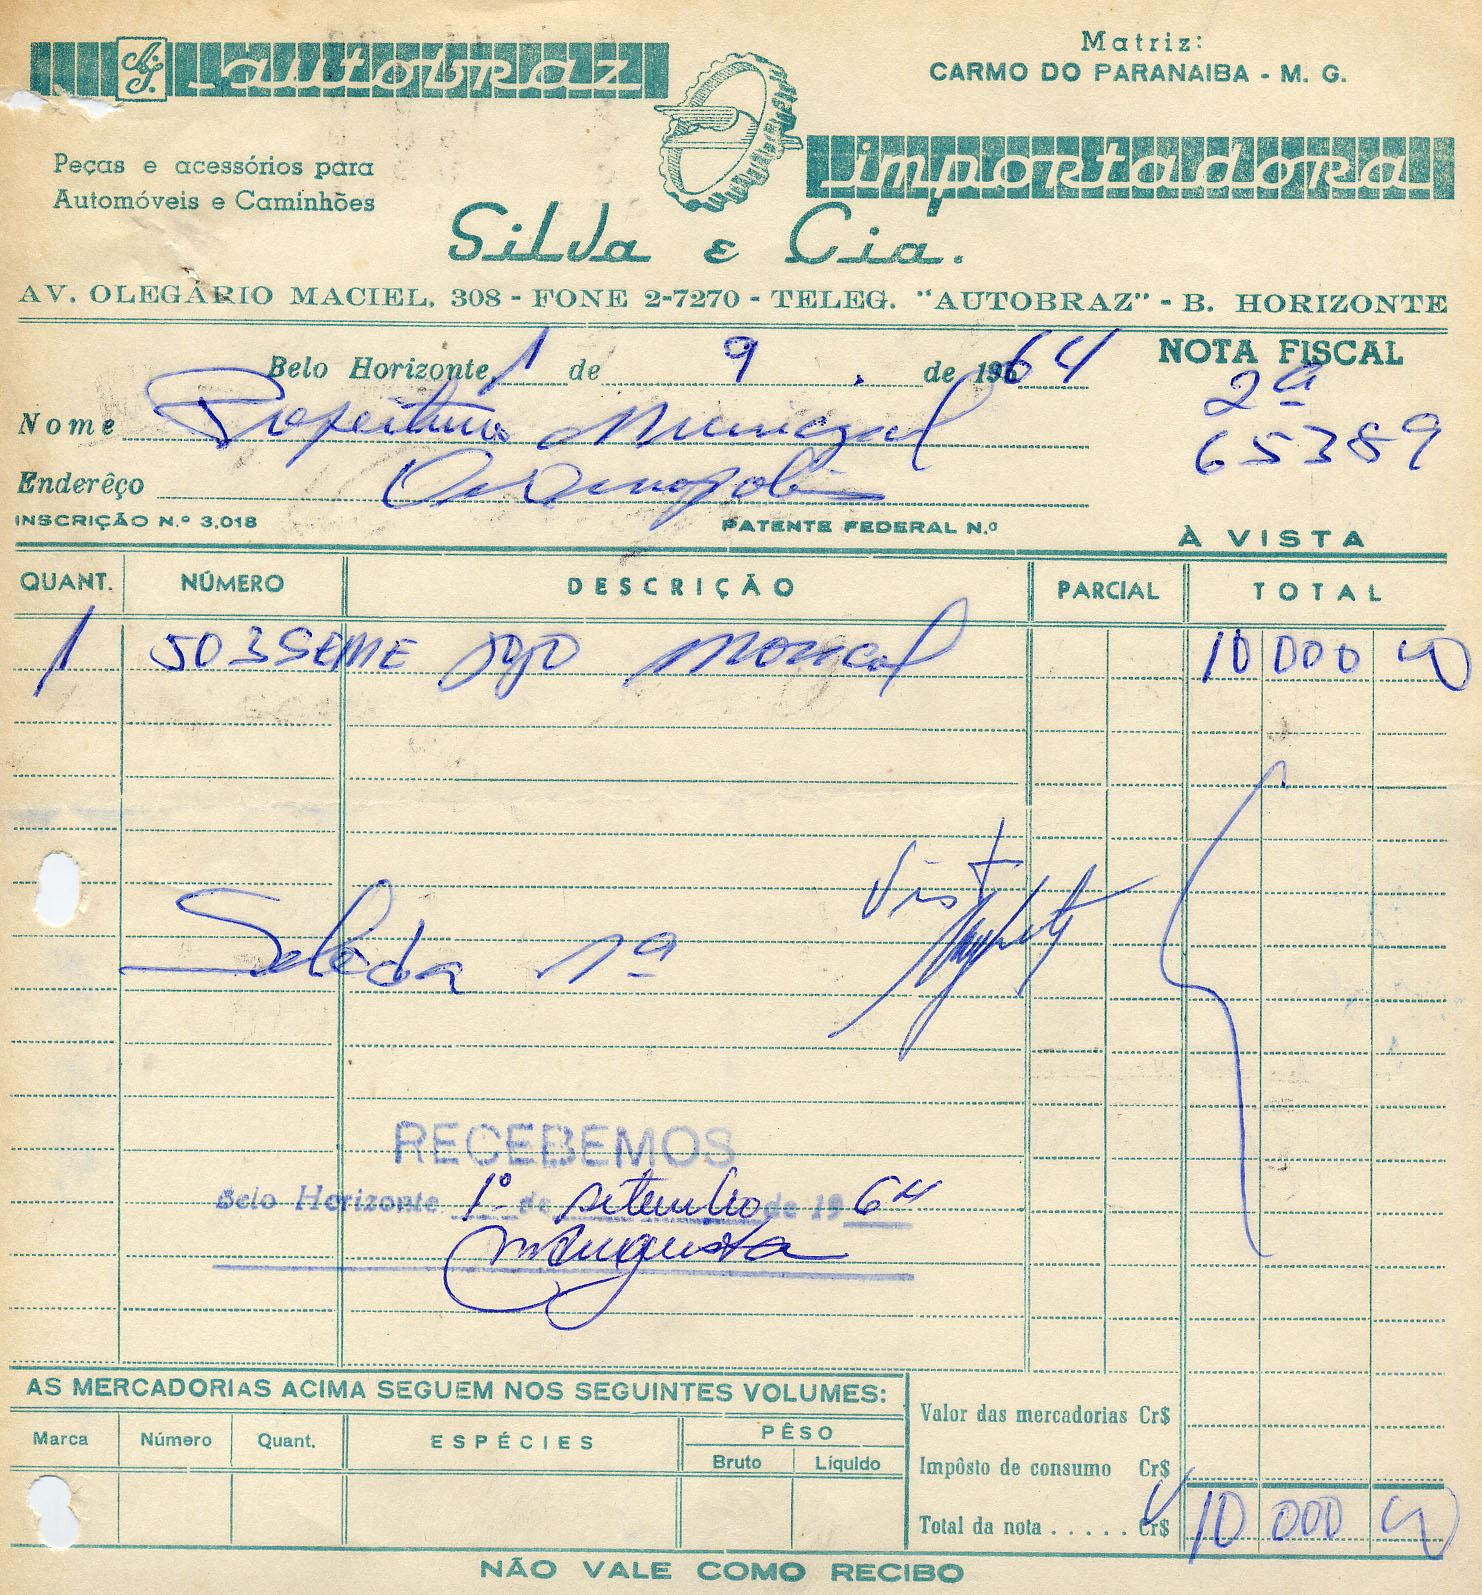 A.J. autobraz
Matriz:
CARMO DO PARANAIBA - M. G.
importadora
Peças e acessórios para
Automóveis e Caminhões
Silva e Cia.
AV. OLEGÁRIO MACIEL, 308 - FONE 2-7270 - TELEG. "AUTOBRAZ" - B. HORIZONTE
Belo Horizonte, 1 de 9 de 1964
NOTA FISCAL
2ª
65389
Nome Prefeitura Municipal
Enderêço
INSCRIÇÃO N.º 3,018
PATENTE FEDERAL N.º
À VISTA
QUANT. NÚMERO DESCRIÇÃO PARCIAL TOTAL
1 503SEME jogo 10 000 00
Visto
1ª
RECEBEMOS
Belo Horizonte 1º de setembro de 1964
AS MERCADORIAS ACIMA SEGUEM NOS SEGUINTES VOLUMES:
Marca Número Quant. ESPÉCIES PÊSO
Bruto Líquido
Valor das mercadorias Cr$
Impôsto de consumo Cr$
Total da nota ..... Cr$ 10 000 00
NÃO VALE COMO RECIBO